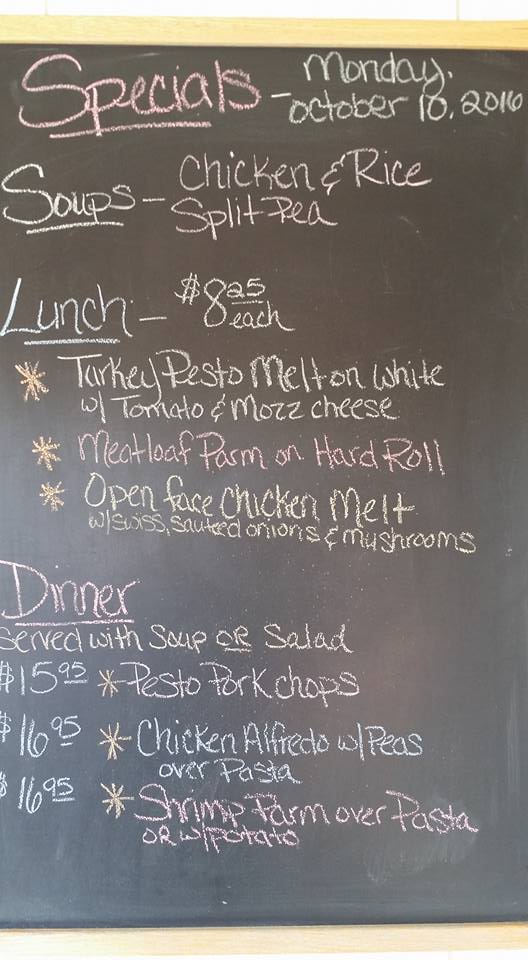 Specials - Monday.
october 10, 2016
Soups - Chicken & Rice
Split Pea
Lunch - $8.25 each
* Turkey Pesto Melt on white
w/ Tomato & Mozz cheese
* Meatloaf Parm on Hard Roll
* Open face Chicken Melt
w/swiss, sauteed onions & mushrooms
Dinner
Served with Soup OR Salad
$15.95 * Pesto Pork chops
$16.95 * Chicken Alfredo w/Peas
over Pasta
$16.95 * Shrimp Parm over Pasta
OR w/potato